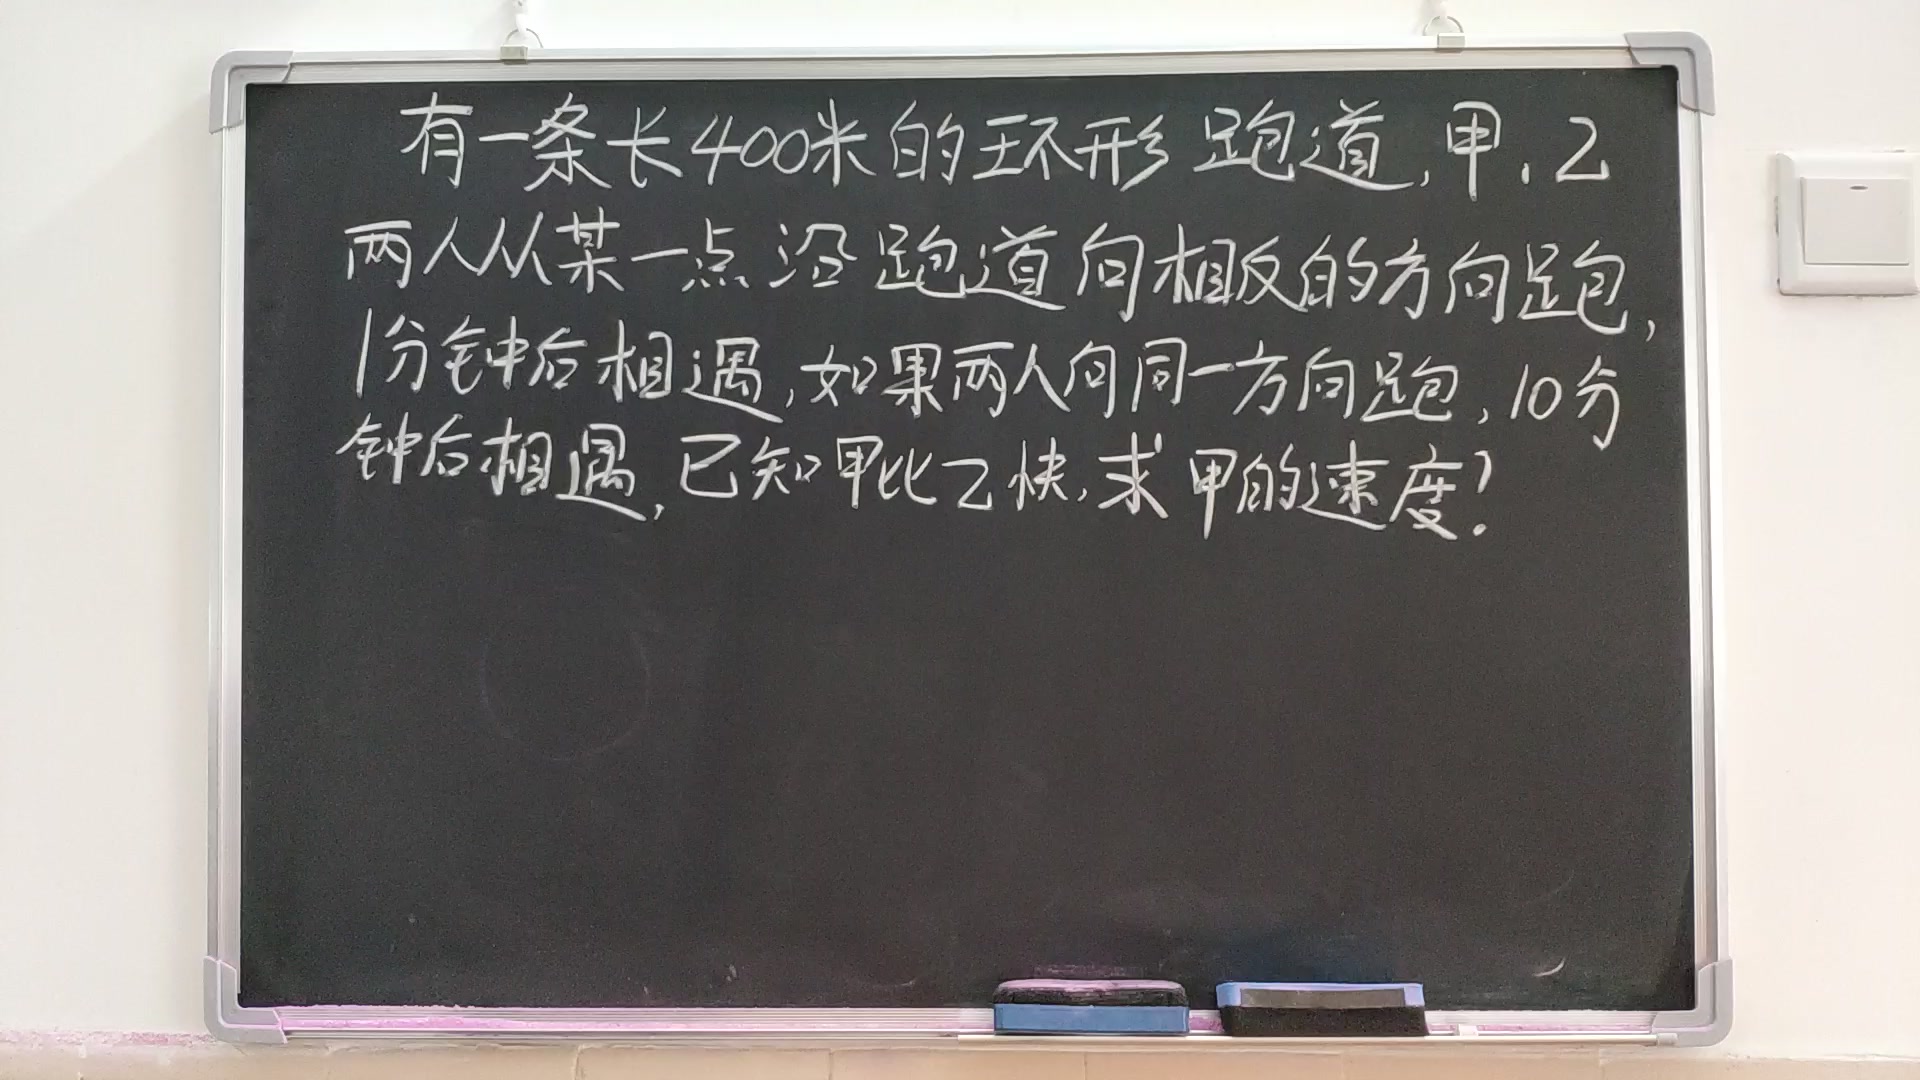 有一条长400米的环形跑道,甲、乙
两人从某一点沿跑道向相反的方向跑,
1分钟后相遇,如果两人向同一方向跑,10分
钟后相遇,已知甲比乙快,求甲的速度?